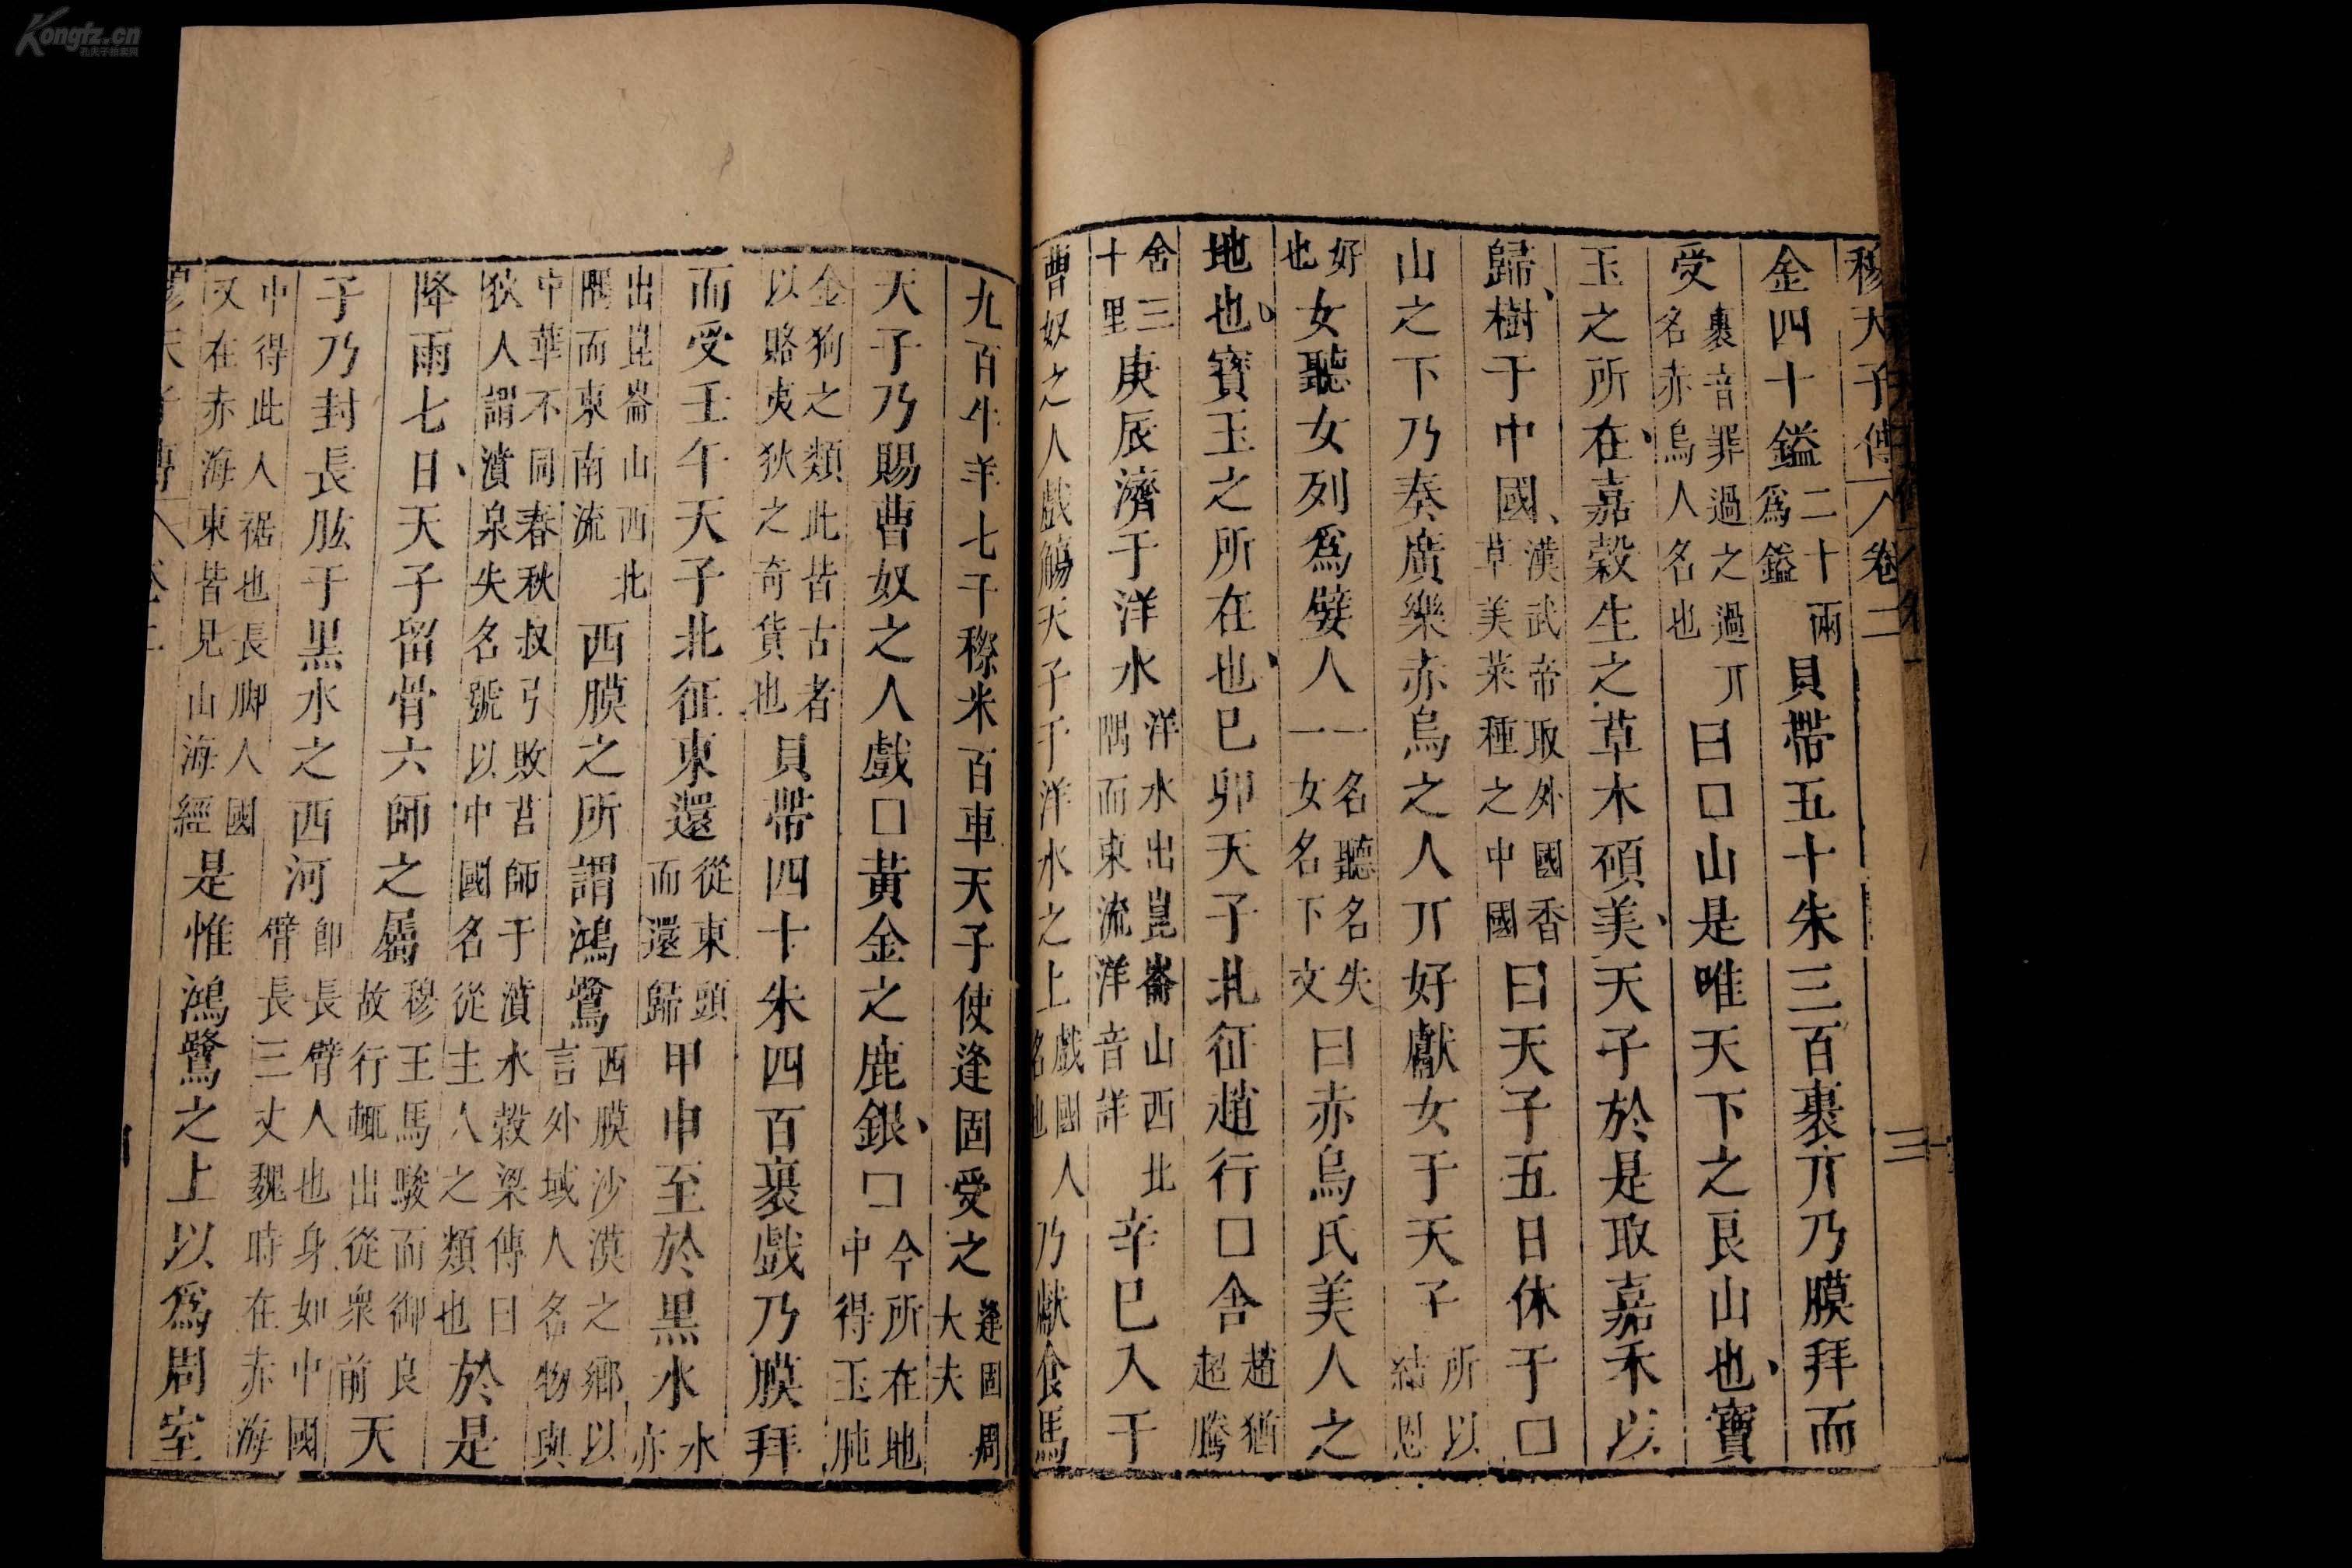 穆天子傳 卷二 三
金四十鎰二十兩為鎰貝帶五十朱三百裹亣乃膜拜而
受裹音罪過之過亣名赤烏人名也曰□山是唯天下之良山也寶
玉之所在嘉穀生之草木碩美天子於是取嘉禾以
歸樹于中國漢武帝取外國香草美菜種之中國曰天子五日休于□
山之下乃奏廣樂赤烏之人亣好獻女于天子所以結恩
好也女聽女列為嬖人一名聽名失一女名下文曰赤烏氏美人之
地也寶玉之所在也巳卯天子北征趙行□舍趙猶超騰
舍三十里庚辰濟于洋水洋水出崑崙山西北隅而東流洋音詳辛巳入于
曹奴之人戲觴天子于洋水之上戲國人名也乃獻食馬
九百牛羊七千穄米百車天子使逢固受之逢固周大夫
天子乃賜曹奴之人戲□黃金之鹿銀□今所在地中得玉肫
金狗之類此皆古者以賂夷狄之奇貨也貝帶四十朱四百裹戲乃膜拜
而受壬午天子北征東還從東頭而還歸甲申至於黑水水亦
出崑崙山西北隅而東南流西膜之所謂鴻鷺西膜沙漠之鄉以言外域人名物與
中華不同春秋叔弓敗莒師于濆水穀梁傳曰狄人謂濆泉失名號以中國名從主人之類也於是
降雨七日天子留骨六師之屬穆王馬駿而御良故行輒出從衆前天
子乃封長肱于黑水之西河即長臂人也身如中國臂長三丈魏時在赤海
中得此人裾也長脚人國又在赤海東皆見山海經是惟鴻鷺之上以為周室
穆天子傳 卷二
Kongfz.cn